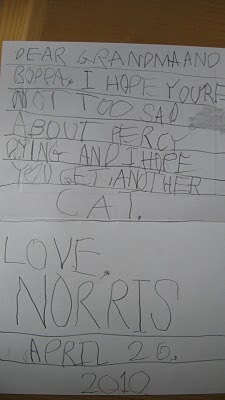 DEAR GRANDMA AND
BOPPA, I HOPE YOU'RE
NOT TOO SAD
ABOUT PERCY
DYING AND I HOPE
YOU GET ANOTHER
CAT.
LOVE,
NORRIS
APRIL 20,
2010